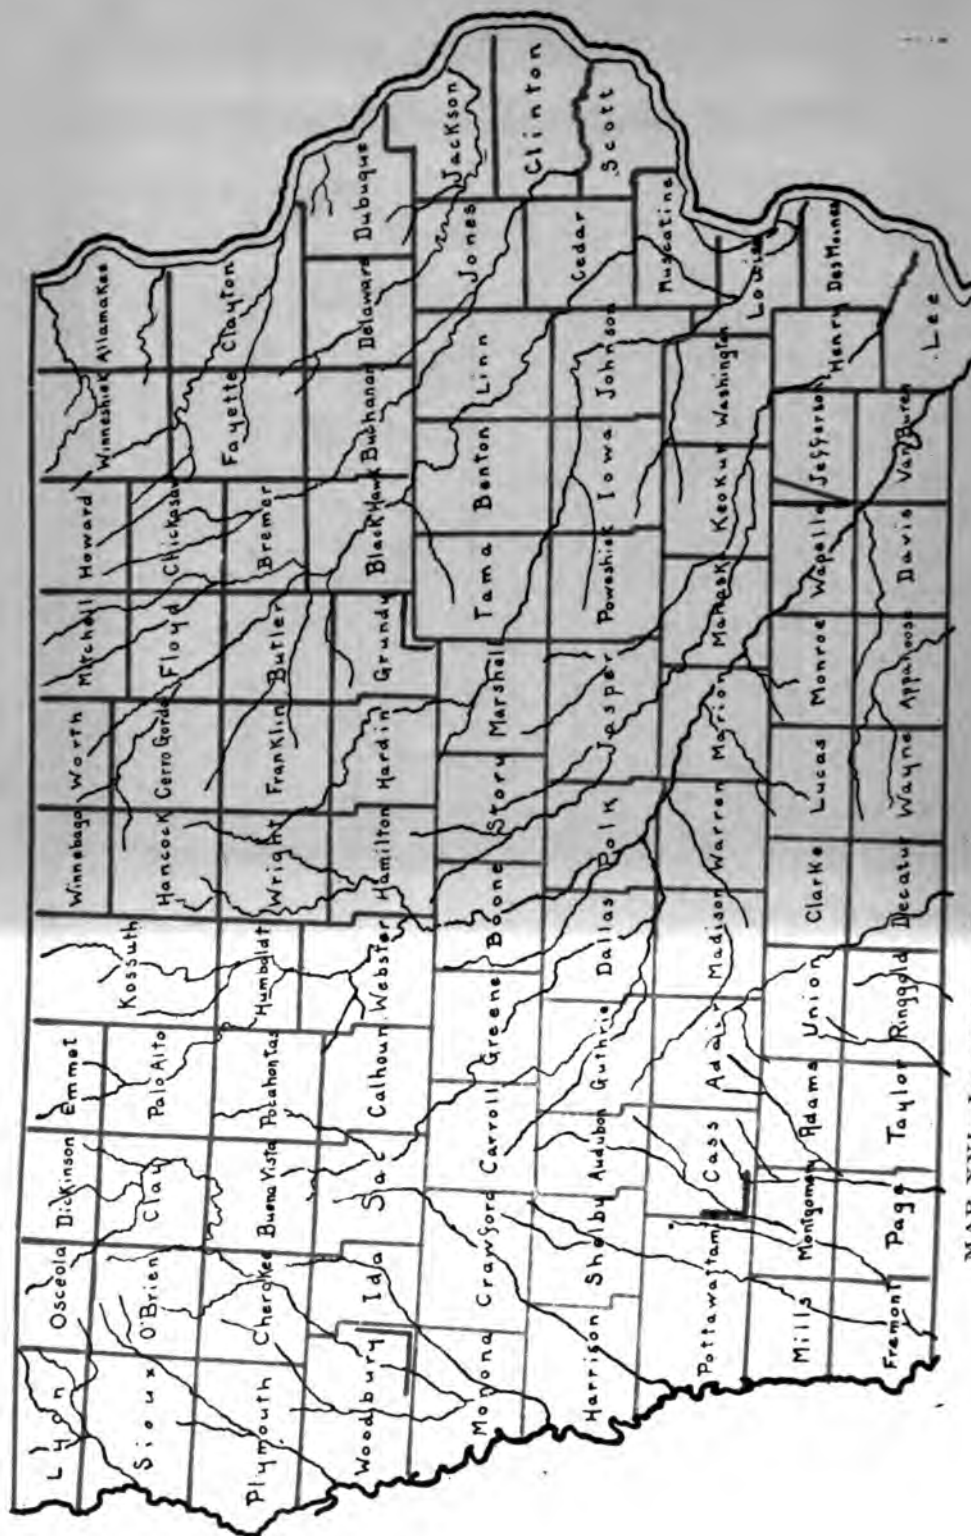 Lyon
Osceola
Dickinson
Emmet
Kossuth
Winnebago
Worth
Mitchell
Howard
Winneshiek
Allamakee
Sioux
O'Brien
Clay
Palo Alto
Hancock
Cerro Gordo
Floyd
Chickasaw
Fayette
Clayton
Plymouth
Cherokee
Buena Vista
Pocahontas
Humboldt
Wright
Franklin
Butler
Bremer
Woodbury
Ida
Sac
Calhoun
Webster
Hamilton
Hardin
Grundy
Black Hawk
Buchanan
Delaward
Dubuque
Monona
Crawford
Carroll
Greene
Boone
Story
Marshall
Tama
Benton
Linn
Jones
Jackson
Clinton
Harrison
Shelby
Audubon
Guthrie
Dallas
Polk
Jasper
Poweshiek
Iowa
Johnson
Cedar
Scott
Muscatine
Pottawattami
Cass
Adair
Madison
Warren
Marion
Mahaska
Keokuk
Washington
Mills
Montgomery
Adams
Union
Clarke
Lucas
Monroe
Wapello
Jefferson
Henry
Des Moines
Fremont
Page
Taylor
Ringgold
Decatur
Wayne
Appahoose
Davis
Van Buren
Lee